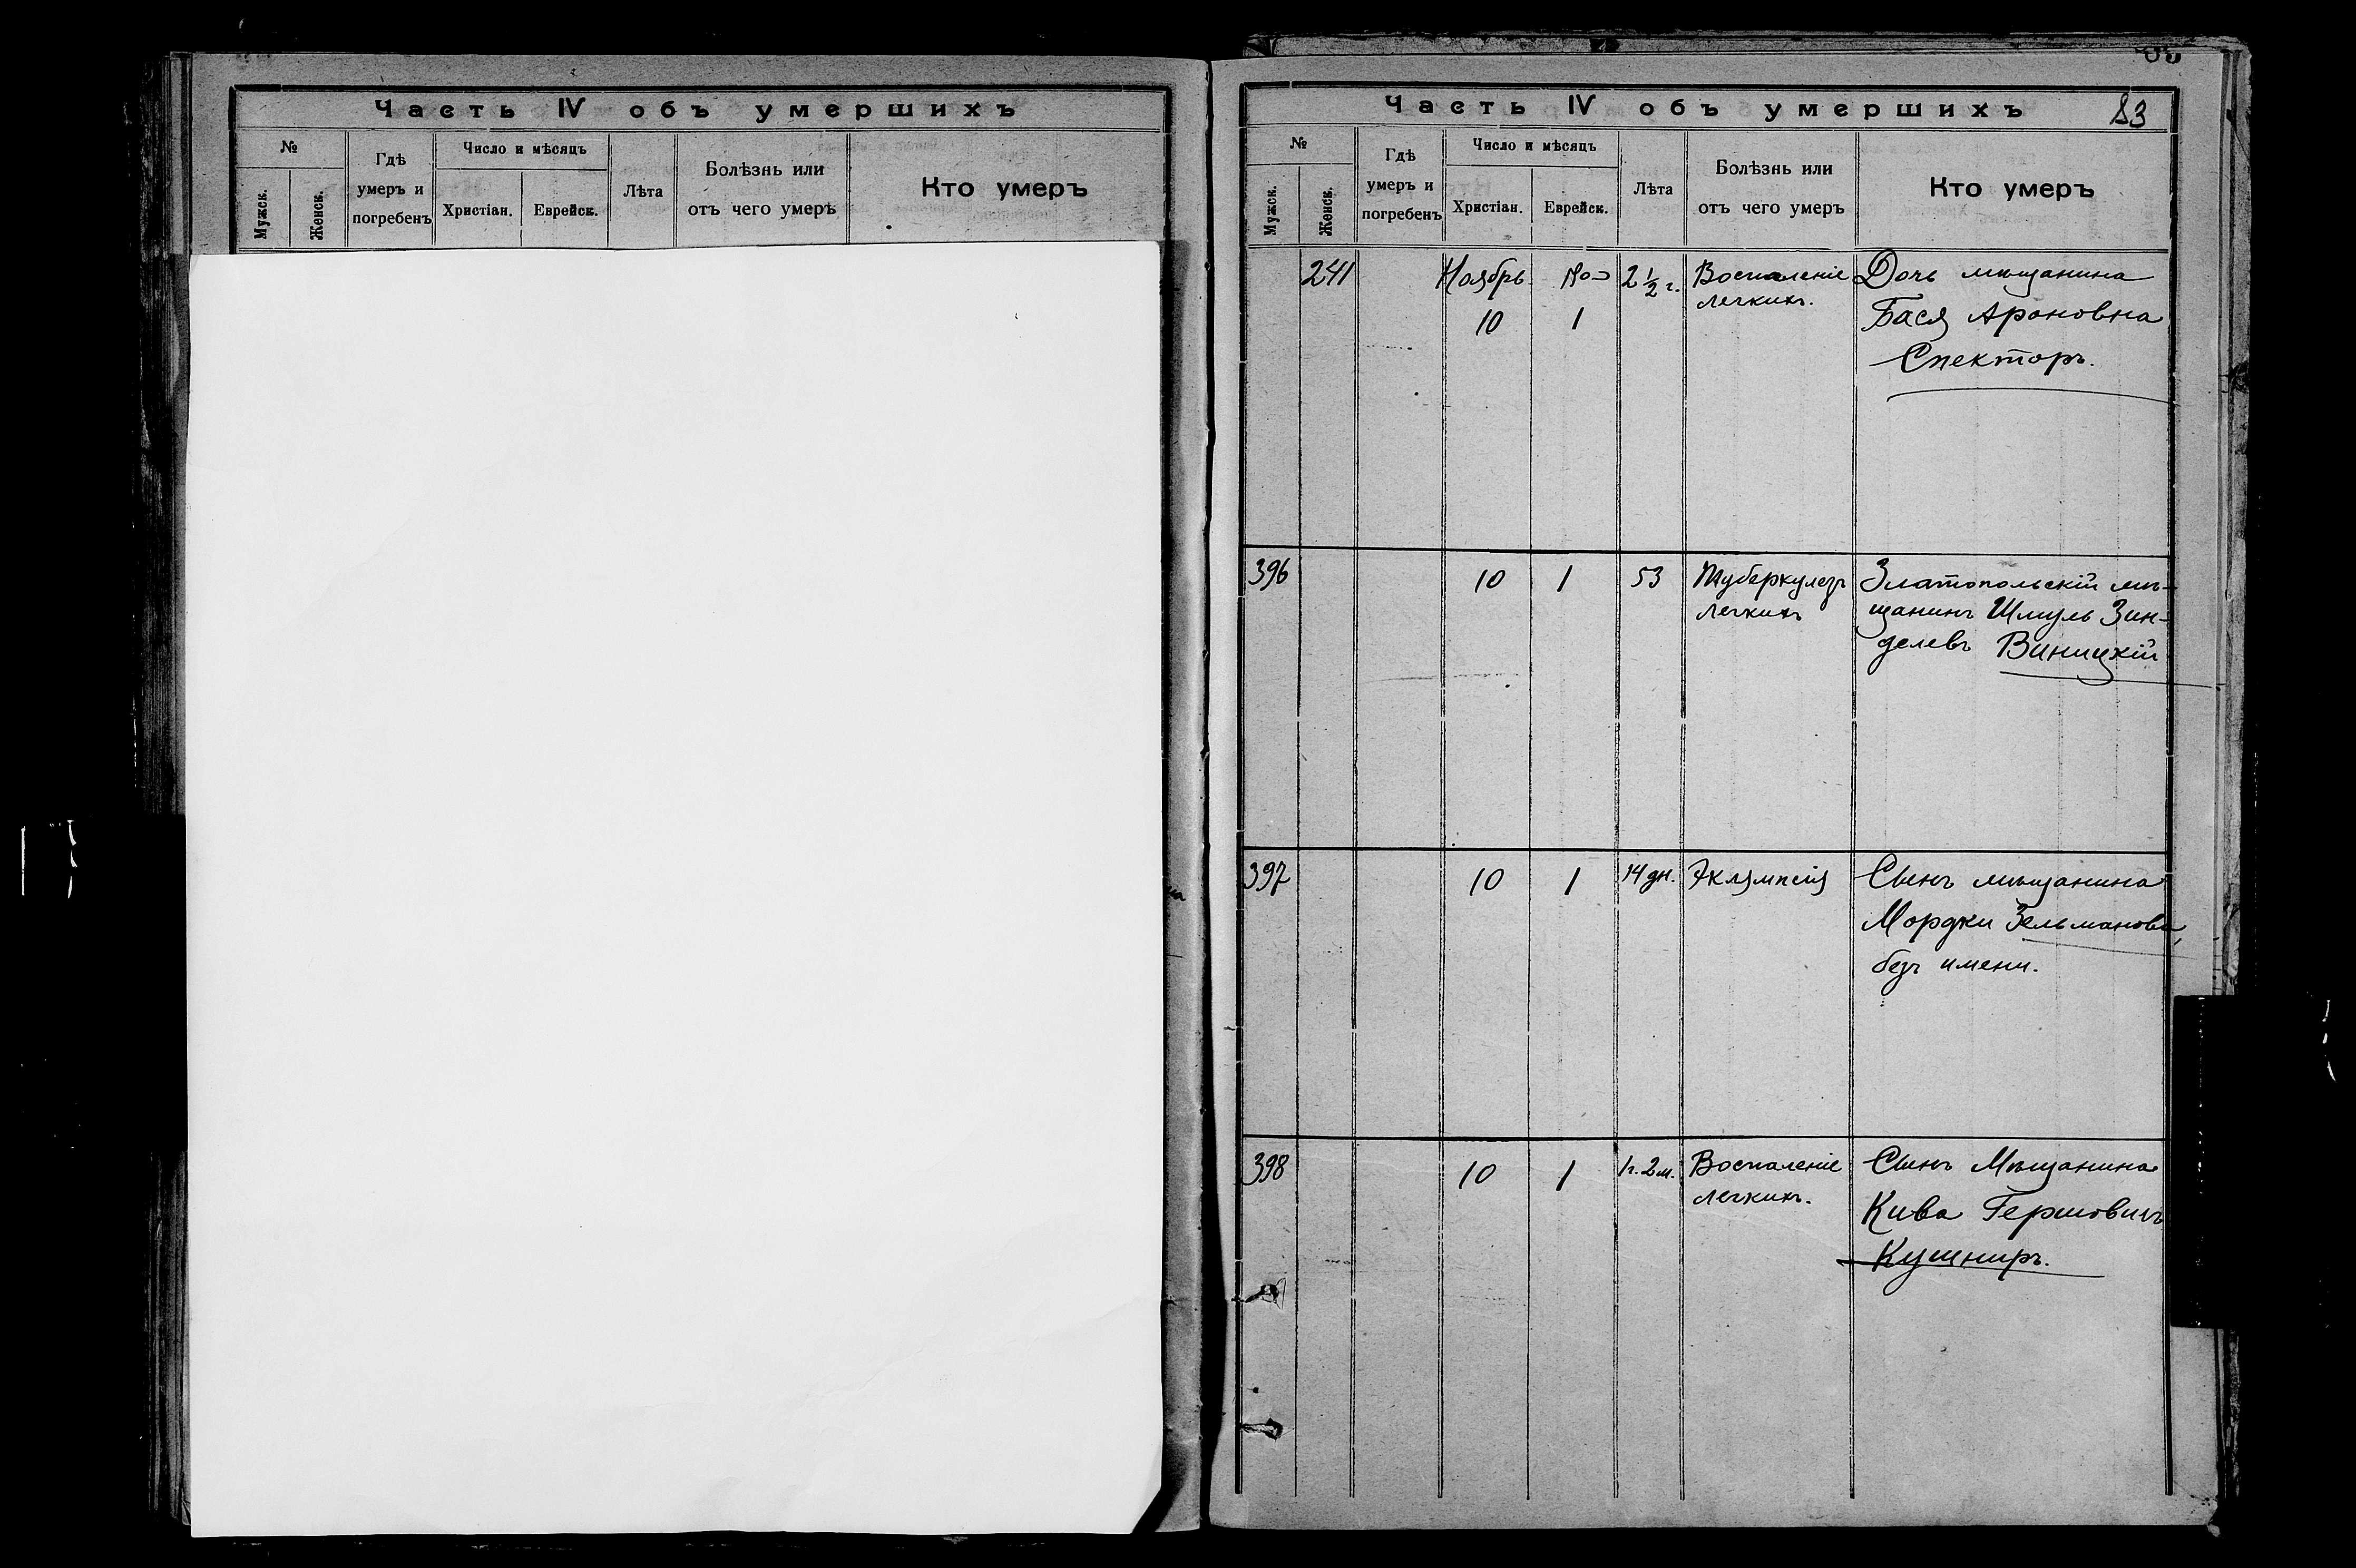 Часть IV объ умершихъ
№
Мужск.
Женск.
Гдѣ
умеръ и
погребенъ
Число и мѣсяцъ
Христіан.
Еврейск.
Лѣта
Болѣзнь или
отъ чего умеръ
Кто умеръ
Часть IV объ умершихъ
83
№
Мужск.
Женск.
Гдѣ
умеръ и
погребенъ
Число и мѣсяцъ
Христіан.
Еврейск.
Лѣта
Болѣзнь или
отъ чего умеръ
Кто умеръ
241
Ноябрь
10
1
2 1/2 г.
Воспаленіе
легкихъ.
Дочь мѣщанина
Бася Ароновна
Спекторъ.
396
10
1
53
Туберкулезъ
легкихъ
Златопольскій мѣ-
щанинъ Шмуль Зин-
делевъ Виницкій
397
10
1
14 дн.
Эклямпсія
Сынъ мѣщанина
Мордки Зельманова,
безъ имени.
398
10
1
1 г. 2 м.
Воспаленіе
легкихъ.
Сынъ Мѣщанина
Кива Гершовичъ
Кушниръ.